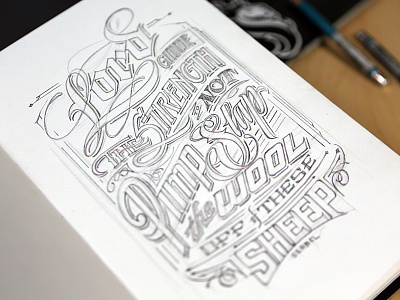 Lord
GIMME
THE STRENGTH
TO NOT
Pimp Slap
the WOOL
OFF THESE
SHEEP